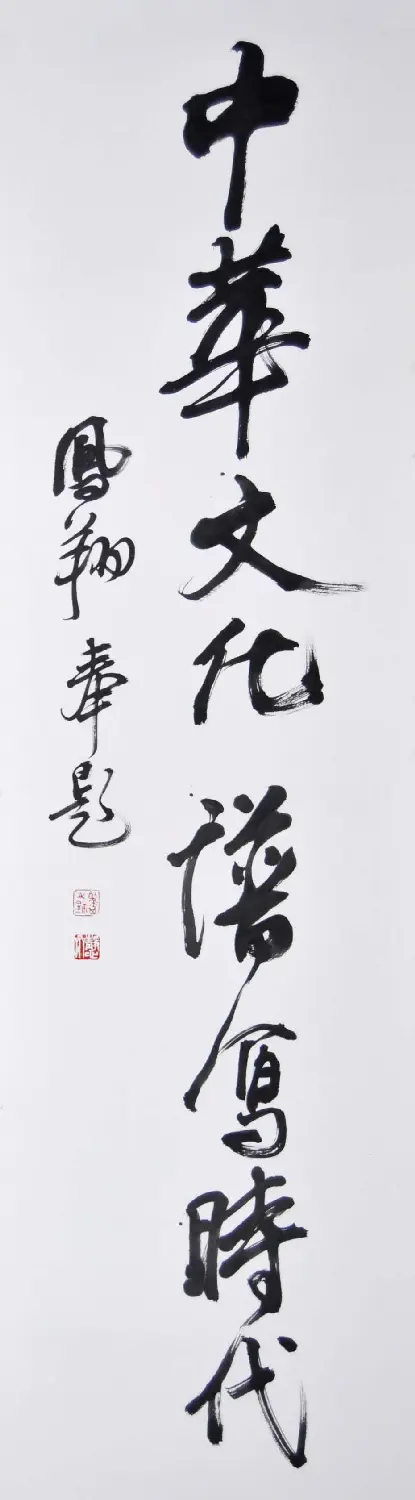 中華文化 譜寫時代
鳳翔奉題